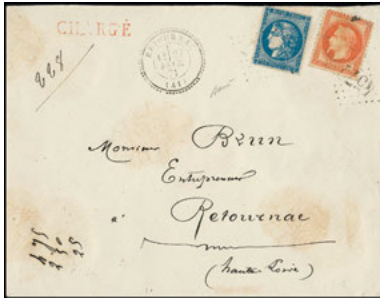 CHARGÉ
228
(41)
Monsieur Brun
Entrepreneur
à Retournac
(haute Loire)
475
250
25